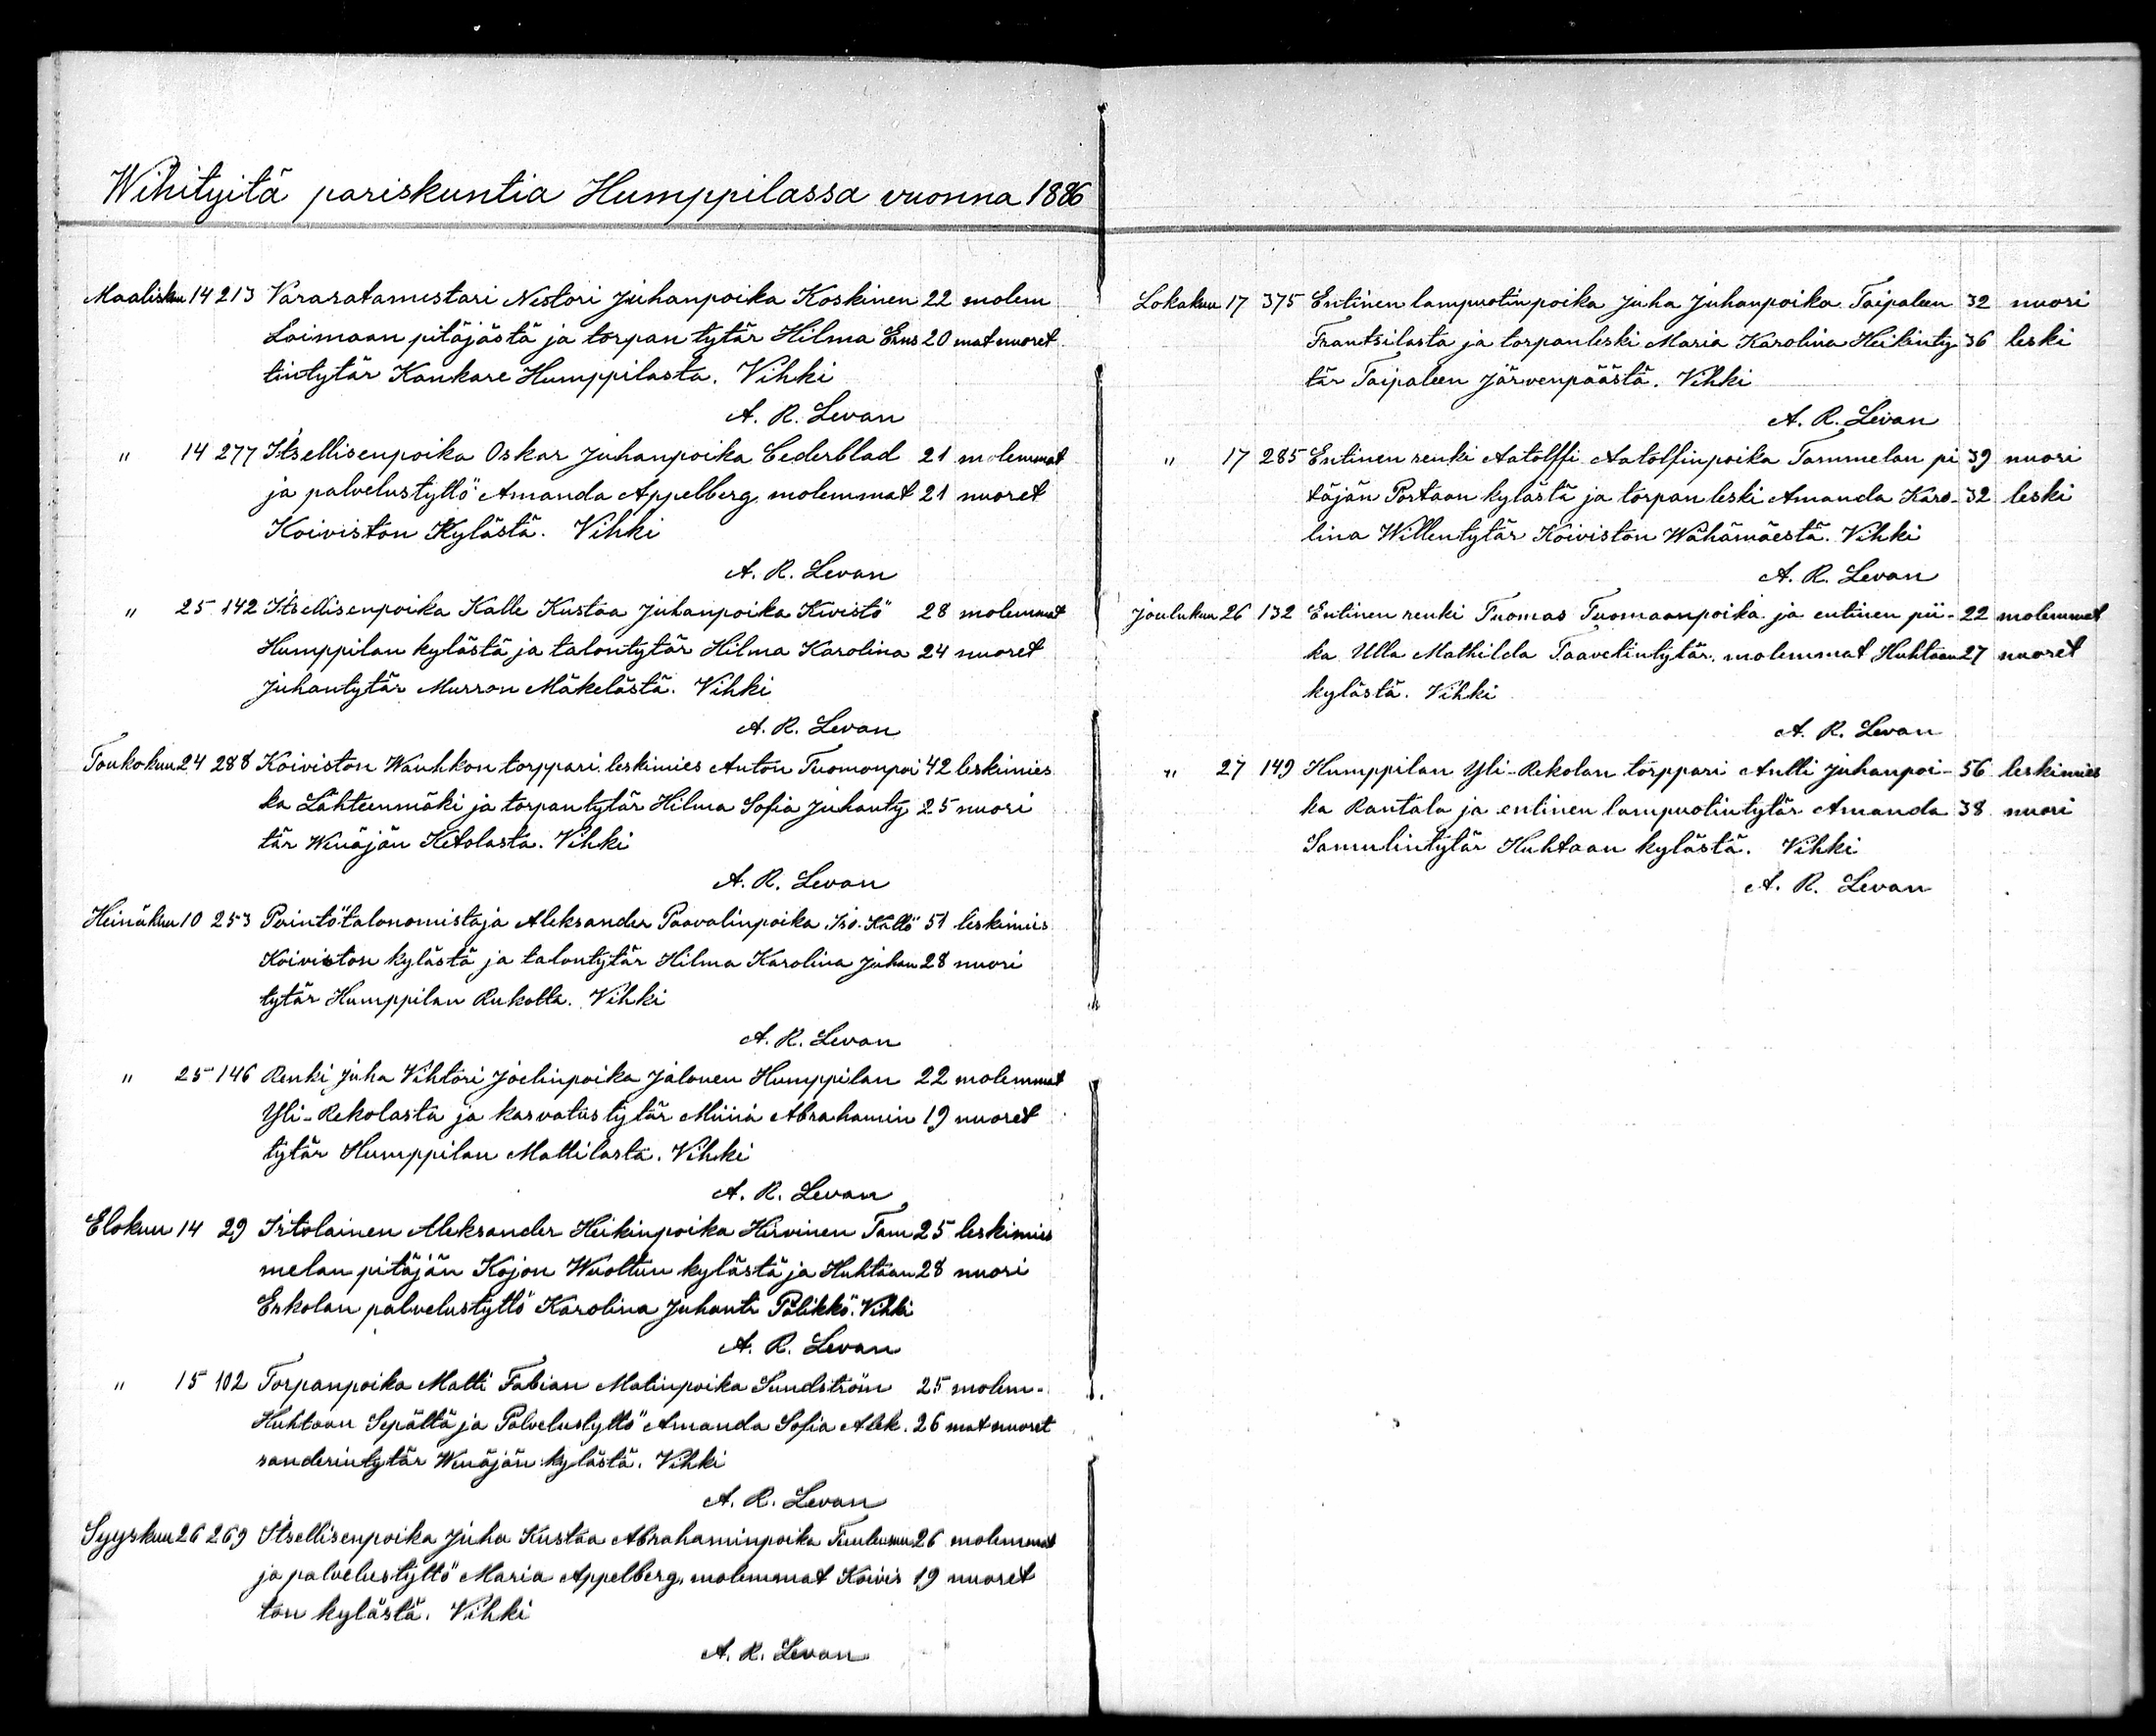 Wihityitä pariskuntia Humppilassa vuonna 1886
Maalisku 14 213 Vararatamestari Nestori Juhanpoika Koskinen 22 molem
Loimaan pitäjästä ja torpan tytär Hilma Erns 20 mat nuoret
tintytär Kankare Humppilasta. Vihki
A. R. Levan
" 14 277 Itsellisenpoika Oskar Juhanpoika Cederblad 21 molemmat
ja palvelustyttö Amanda Appelberg molemmat 21 nuoret
Koiviston Kylästä. Vihki
A. R. Levan
" 25 142 Itsellisenpoika Kalle Kustaa Juhanpoika Kivistö 28 molemmat
Humppilan kylästä ja talontytär Hilma Karolina 24 nuoret
Juhantytär Murron Mäkelästä. Vihki
A. R. Levan
Toukokuu 24 288 Koiviston Wauhkon torppari leskimies Anton Tuomonpoi 42 leskimies
ka Lähteenmäki ja torpantytär Hilma Sofia Juhanty 25 nuori
tär Wenäjän Ketolasta. Vihki
A. R. Levan
Heinäkuu 10 253 Perintötalonomistaja Aleksander Paavalinpoika Iso-Kallo 51 leskimies
Koiviston kylästä ja talontytär Hilma Karolina Juhan 28 nuori
tytär Humppilan Rukolta. Vihki
A. R. Levan
" 25 146 Renki Juha Vihtori Joelinpoika Jalonen Humppilan 22 molemmat
Yli-Rekolasta ja kasvatustytär Miina Abrahamin 19 nuoret
tytär Humppilan Mattilasta. Vihki
A. R. Levan
Elokuu 14 29 Irtolainen Aleksander Heikinpoika Hirvinen Tam 25 leskimies
melan pitäjän Kojon Wuoltun kylästä ja Huhtaan 28 nuori
Erkolan palvelustyttö Karolina Juhant: Pölikkö. Vihki
A. R. Levan
" 15 102 Torpanpoika Matti Fabian Matinpoika Sundström 25 molem-
Huhtaan Sepältä ja Palvelustyttö Amanda Sofia Alek. 26 mat nuoret
sanderintytär Wenäjän kylästä. Vihki
A. R. Levan
Syyskuu 26 269 Itsellisenpoika Juha Kustaa Abrahaminpoika 26 molemmat
ja palvelustyttö Maria Appelberg, molemmat Koivis 19 nuoret
ton kylästä. Vihki
A. R. Levan
Lokakuu 17 375 Entinen lampuotinpoika Juha Juhanpoika Taipaleen 32 nuori
Frantsilasta ja torpanleski Maria Karolina Heikinty 36 leski
tär Taipaleen Järvenpäästä. Vihki
A. R. Levan
" 17 285 Entinen renki Aatolffi Aatolfinpoika Tammelan pi 39 nuori
täjän Portaan kylästä ja torpan leski Amanda Karo- 32 leski
lina Willentytär Koiviston Wähämäestä. Vihki
A. R. Levan
Joulukuu 26 132 Entinen renki Tuomas Tuomaanpoika ja entinen pii- 22 molemmat
ka Ulla Mathilda Taavetintytär, molemmat Huhtaan 27 nuoret
kylästä. Vihki
A. R. Levan
" 27 149 Humppilan Yli-Rekolan torppari Antti Juhanpoi- 56 leskimies
ka Rantala ja entinen lampuotintytär Amanda 38 nuori
Samulintytär Huhtaan kylästä. Vihki
A. R. Levan